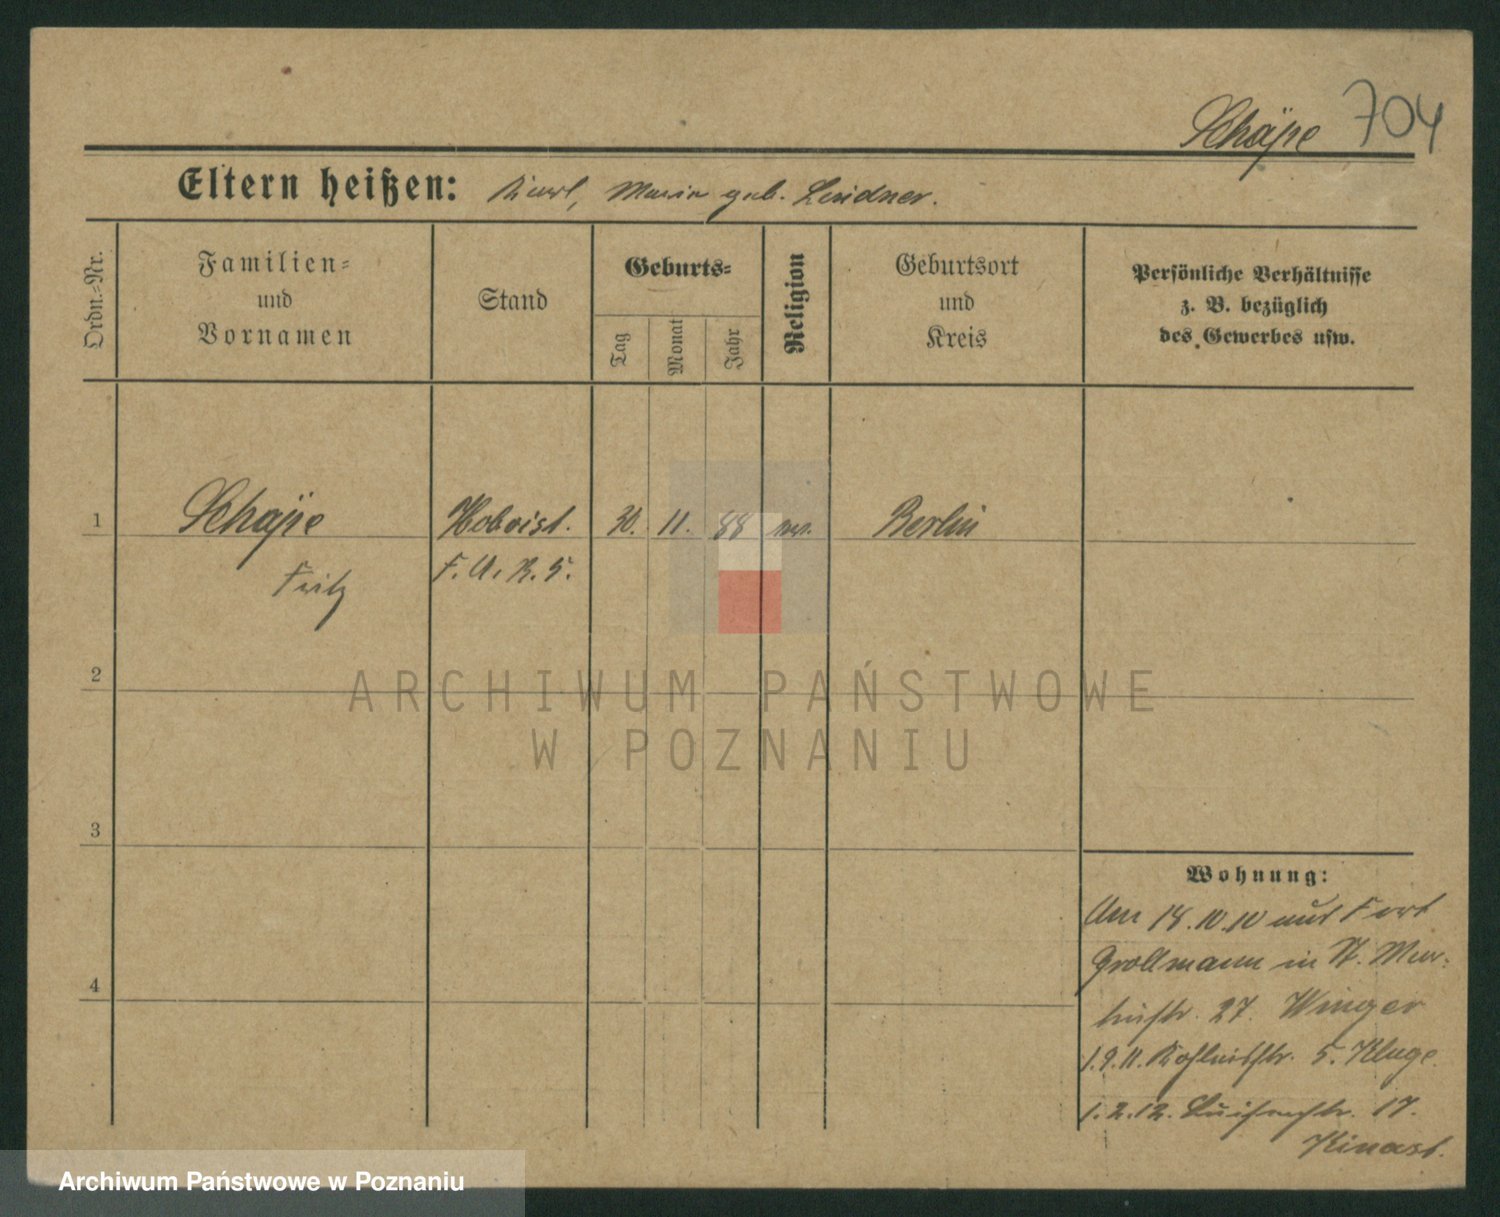 Schäpe 704
Eltern heißen: Karl, Maria geb. Lindner.
Ordn.-Nr.
Familien-
und
Vornamen
Stand
Geburts-
Tag
Monat
Jahr
Religion
Geburtsort
und
Kreis
Persönliche Verhältnisse
z. B. bezüglich
des Gewerbes usw.
1 Schäpe Hoboist. 30. 11. 88 Berlin
Fritz F. A. R. 5.
2
3
4
Wohnung:
Am 18.10.10 aus Fort
Grollmann in St. Mar-
tinstr. 27. Winger
1.9.11. 5. Kluge.
1.2.12. Luisenstr. 17.
Kinast.
ARCHIWUM PAŃSTWOWE
W POZNANIU
Archiwum Państwowe w Poznaniu